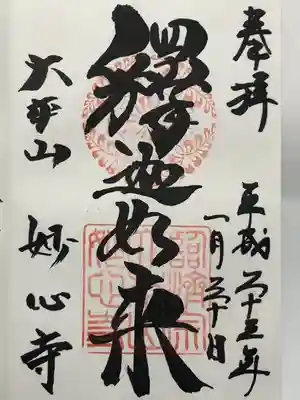 奉拝
平成二十三年
一月二十日
釋迦如来
妙心寺